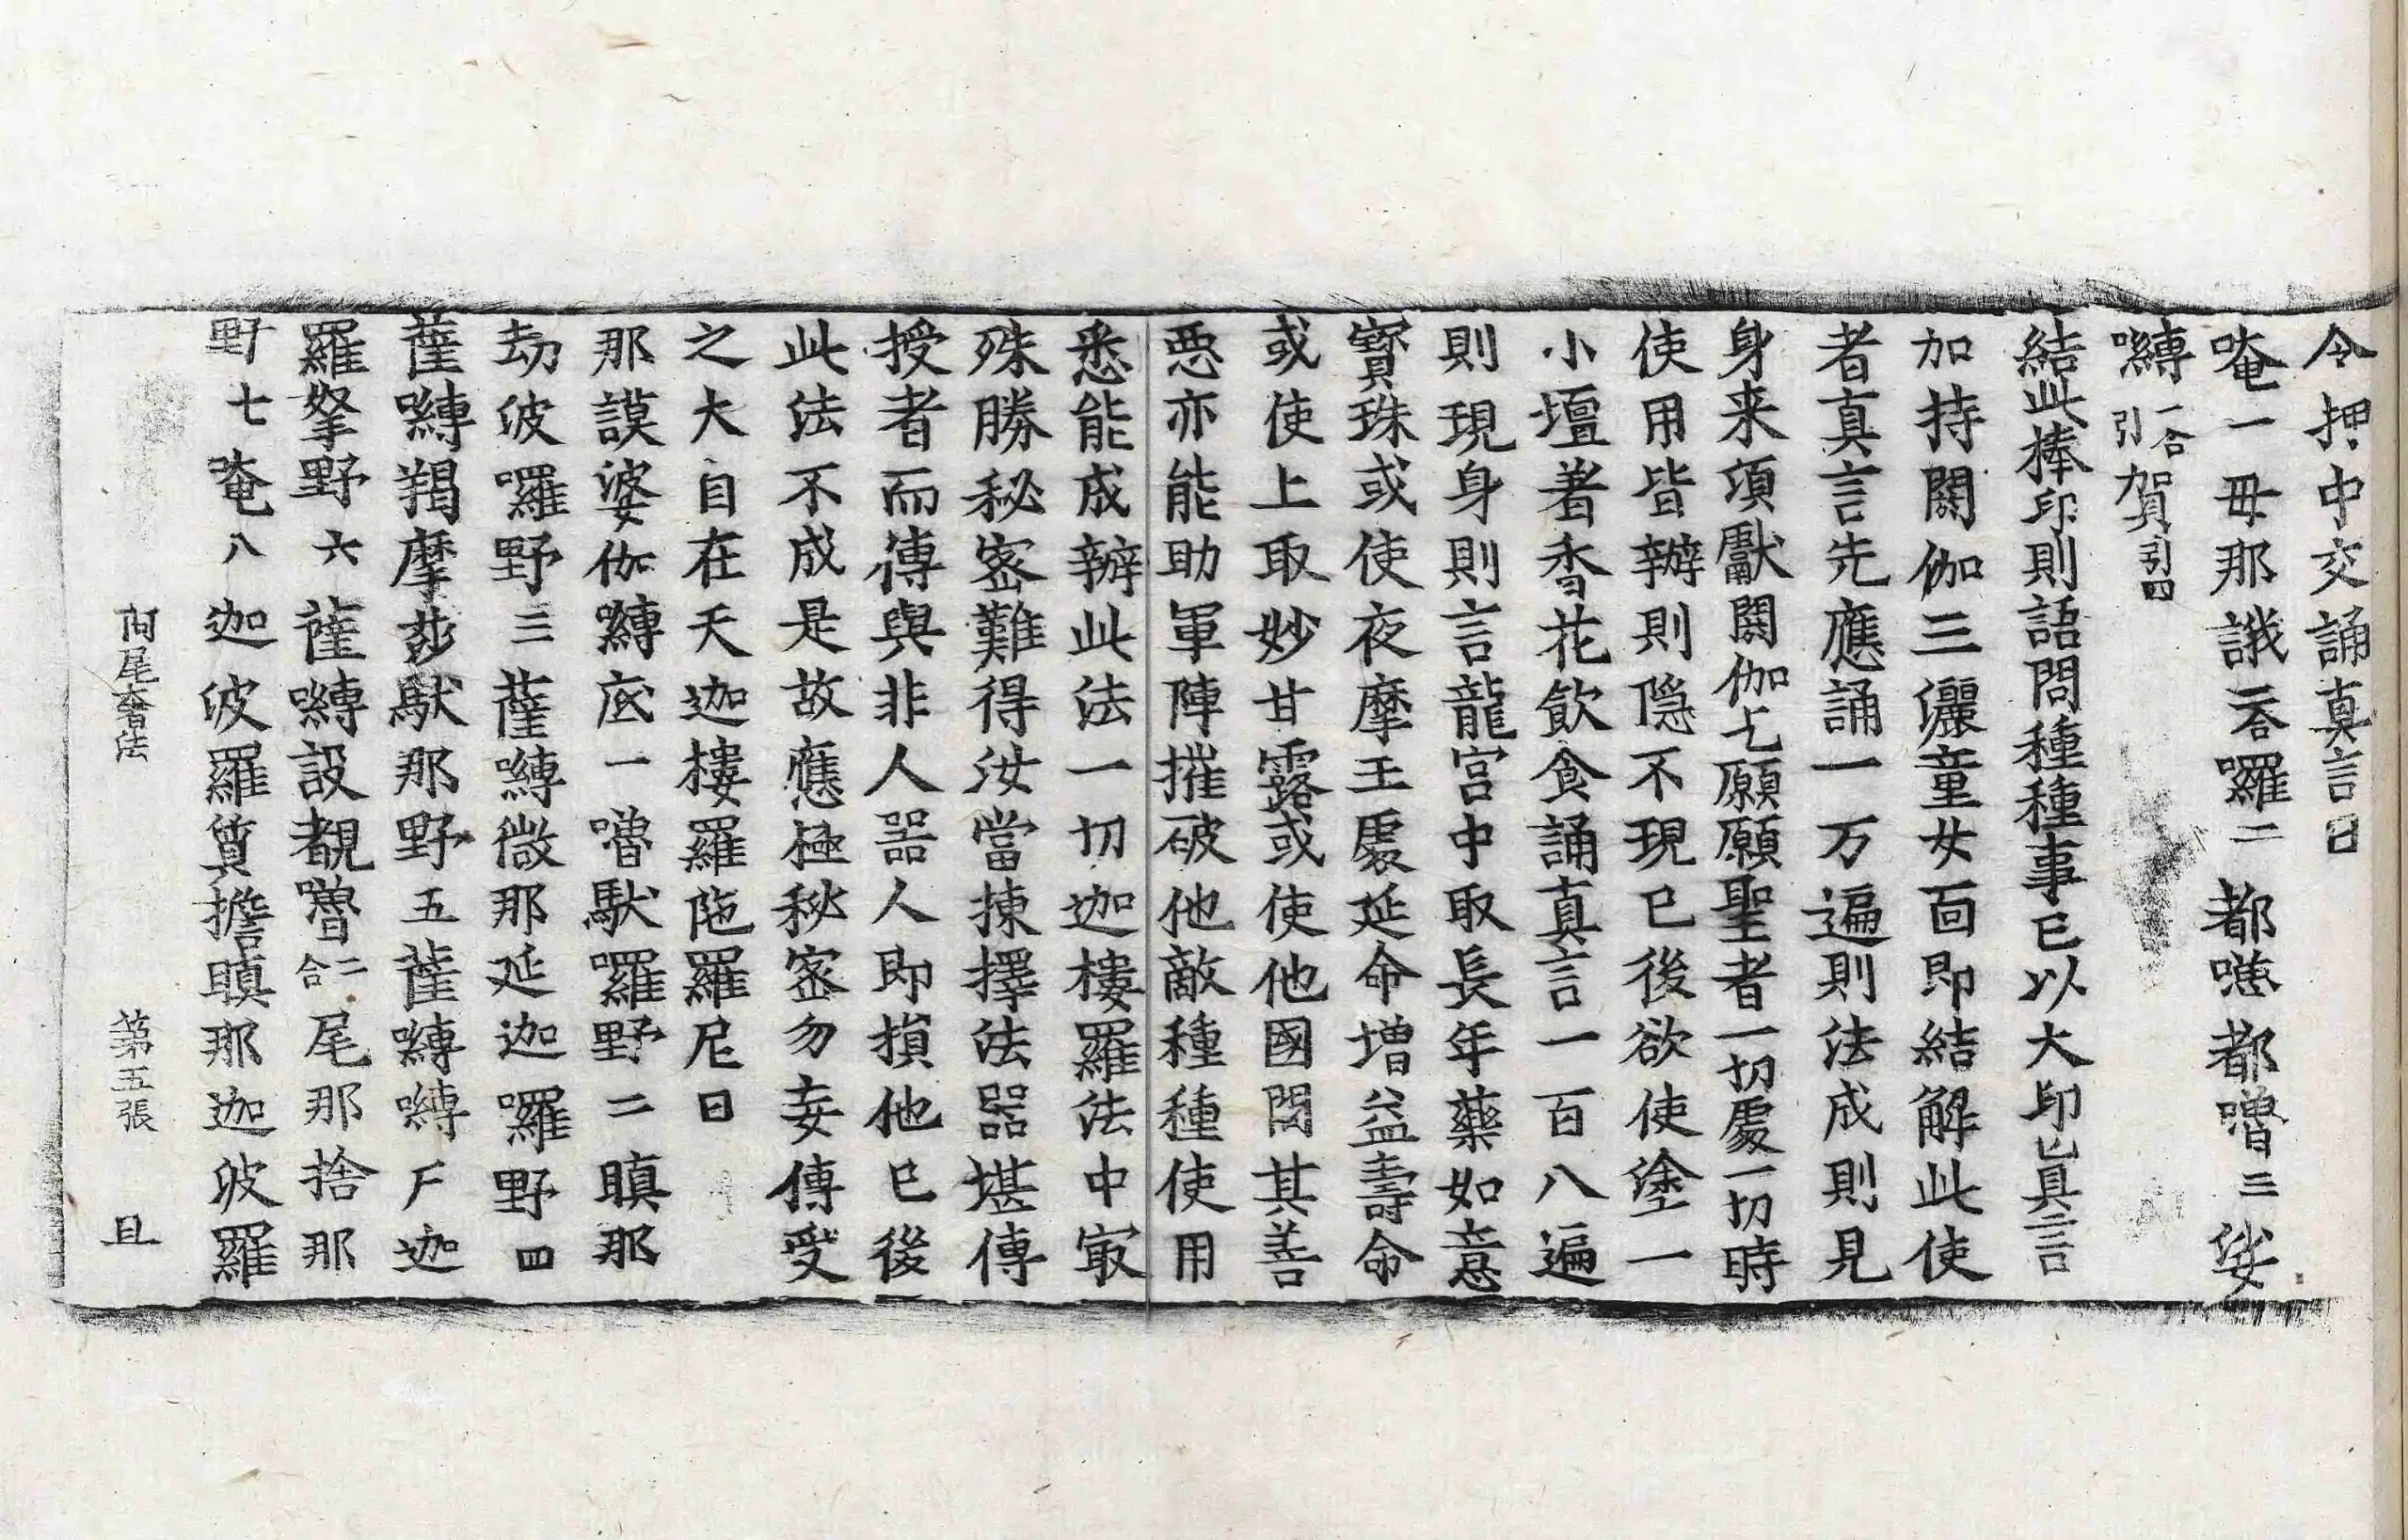 令押中交誦真言曰
唵一毋那誐二合囉二都嚥都嚕三娑
嚩二合引賀引四
結此捧印則語問種種事已以大印已真言
加持閼伽三灑童女面即結解此使
者真言先應誦一万遍則法成則見
身来須獻閼伽乞願願聖者一切處一切時
使用皆辦則隱不現已後欲使塗一
小壇著香花飲食誦真言一百八遍
則現身則言龍宮中取長年藥如意
寶珠或使夜摩王處延命增益壽命
或使上取妙甘露或使他國問其善
惡亦能助軍陣摧破他敵種種使用
悉能成辦此法一切迦樓羅法中㝡
殊勝秘密難得汝當揀擇法器堪傳
授者而傳與非人器人即損他已後
此法不成是故應極秘密勿妄傳受
之大自在天迦樓羅陁羅尼曰
那謨婆伽嚩底一嚕馱囉野二瞋那
劫波囉野三薩嚩微那延迦囉野四
薩嚩羯摩莎馱那野五薩嚩嚩尸迦
羅拏野六薩嚩設覩嚕二合尾那捨那
野七唵八迦波羅賀擔瞋那迦波羅
阿尾奢法 第五張 且